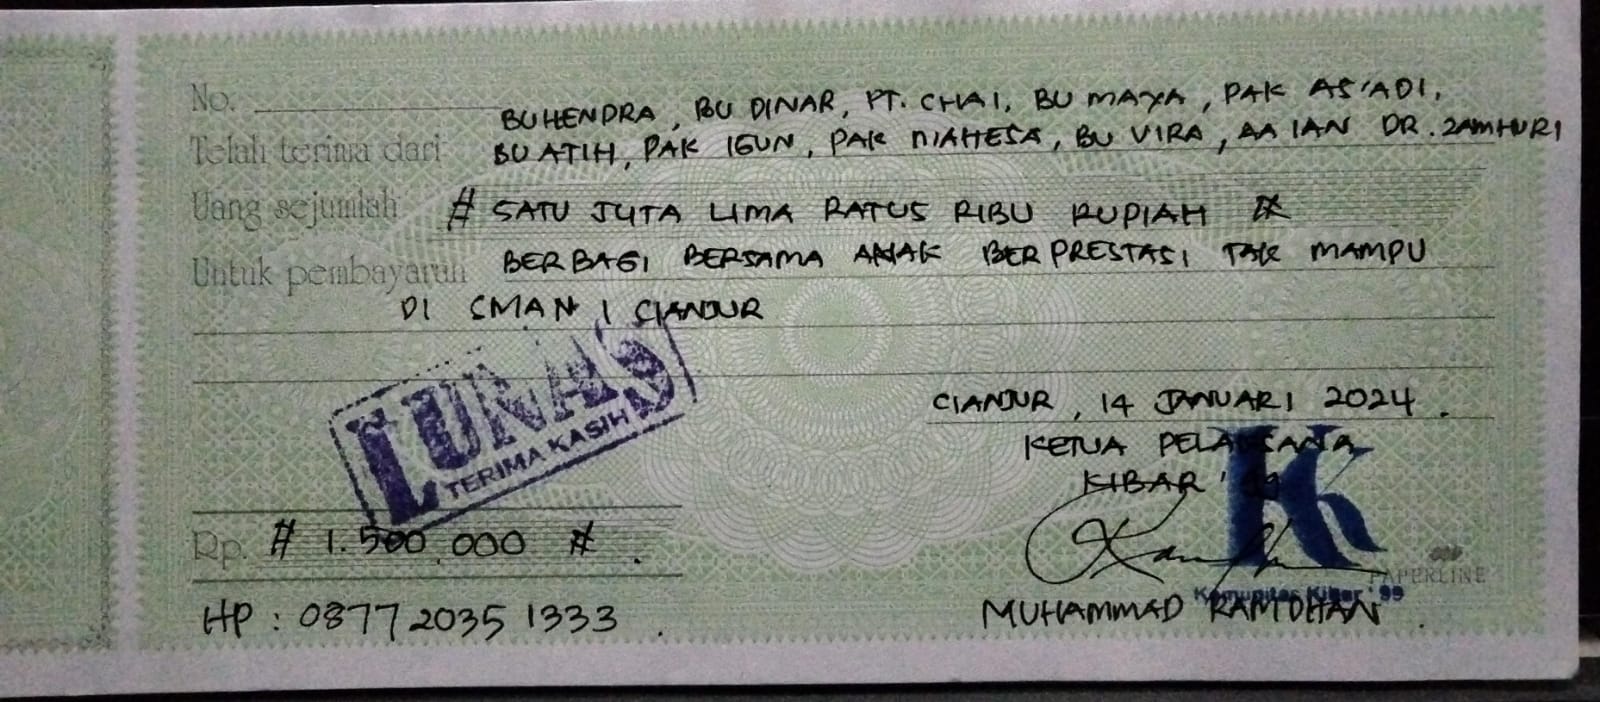 No.
BU HENDRA, BU DINAR, PT. CHAI, BU MAYA, PAK AS'ADI,
Telah terima dari BU ATIH, PAK IGUN, PAK MAHESA, BU VIRA, AA IAN DR. ZAMHURI
Uang sejumlah # SATU JUTA LIMA RATUS RIBU RUPIAH #
Untuk pembayaran BERBAGI BERSAMA ANAK BERPRESTASI TAK MAMPU
DI SMAN 1 CIANJUR
LUNAS
TERIMA KASIH
CIANJUR, 14 JANUARI 2024.
KETUA PELAKSANA
KIBAR '99
K
Rp. # 1.500.000 #.
PAPERLINE
Komunitas Kibar '99
HP : 0877 2035 1333.
MUHAMMAD RAMDHAN.